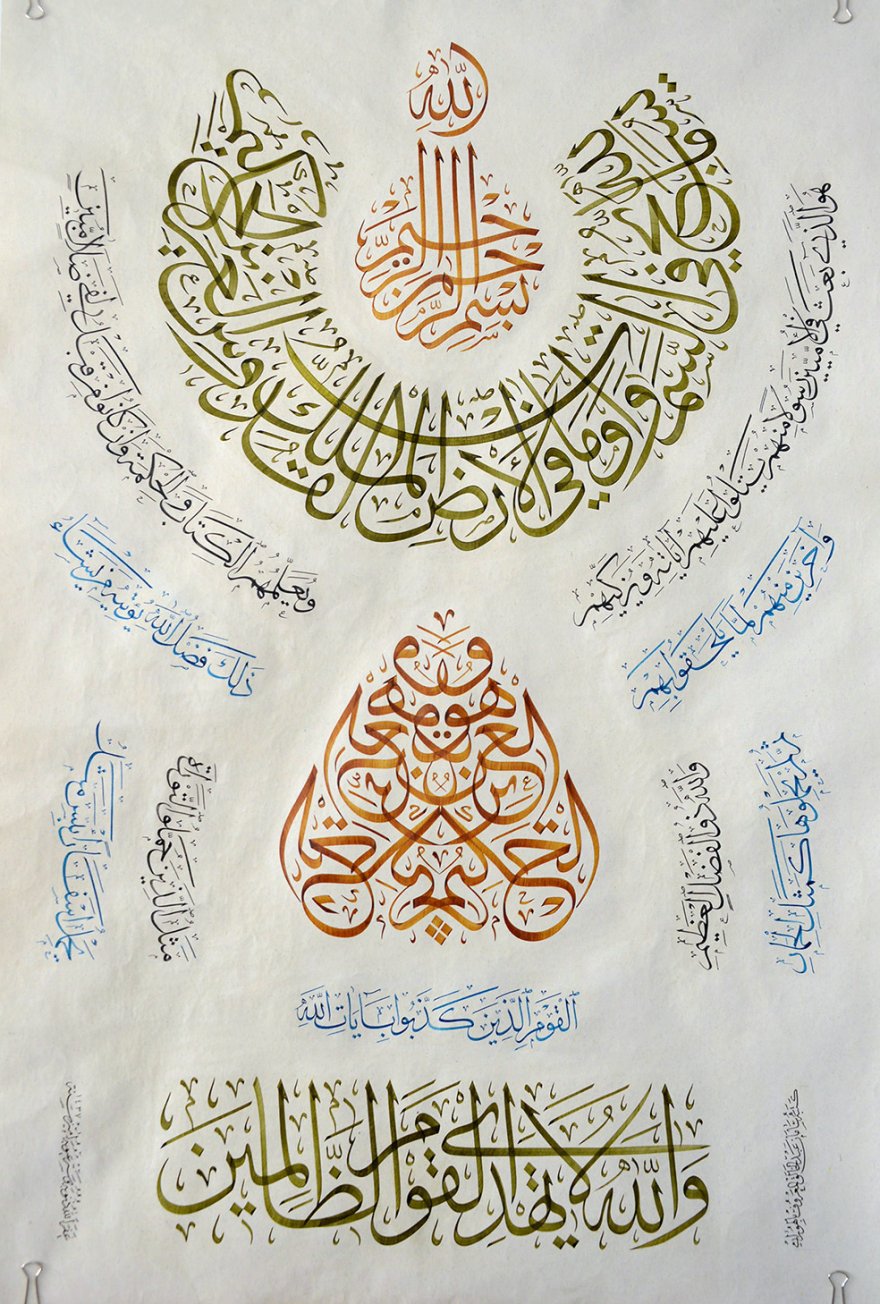 بِسْمِ اللّٰهِ الرَّحْمٰنِ الرَّحِيمِ
يسبح لله ما في السموات وما في الأرض الملك القدوس العزيز الحكيم
هو الذي بعث في الأميين رسولا منهم يتلوا عليهم آياته ويزكيهم
ويعلمهم الكتاب والحكمة وإن كانوا من قبل لفي ضلال مبين
وآخرين منهم لما يلحقوا بهم
وهو العزيز الحكيم
ذلك فضل الله يؤتيه من يشاء
والله ذو الفضل العظيم
مثل الذين حملوا التوراة
ثم لم يحملوها كمثل الحمار
يحمل أسفارا بئس مثل
القوم الذين كذبوا بآيات الله
والله لا يهدي القوم الظالمين